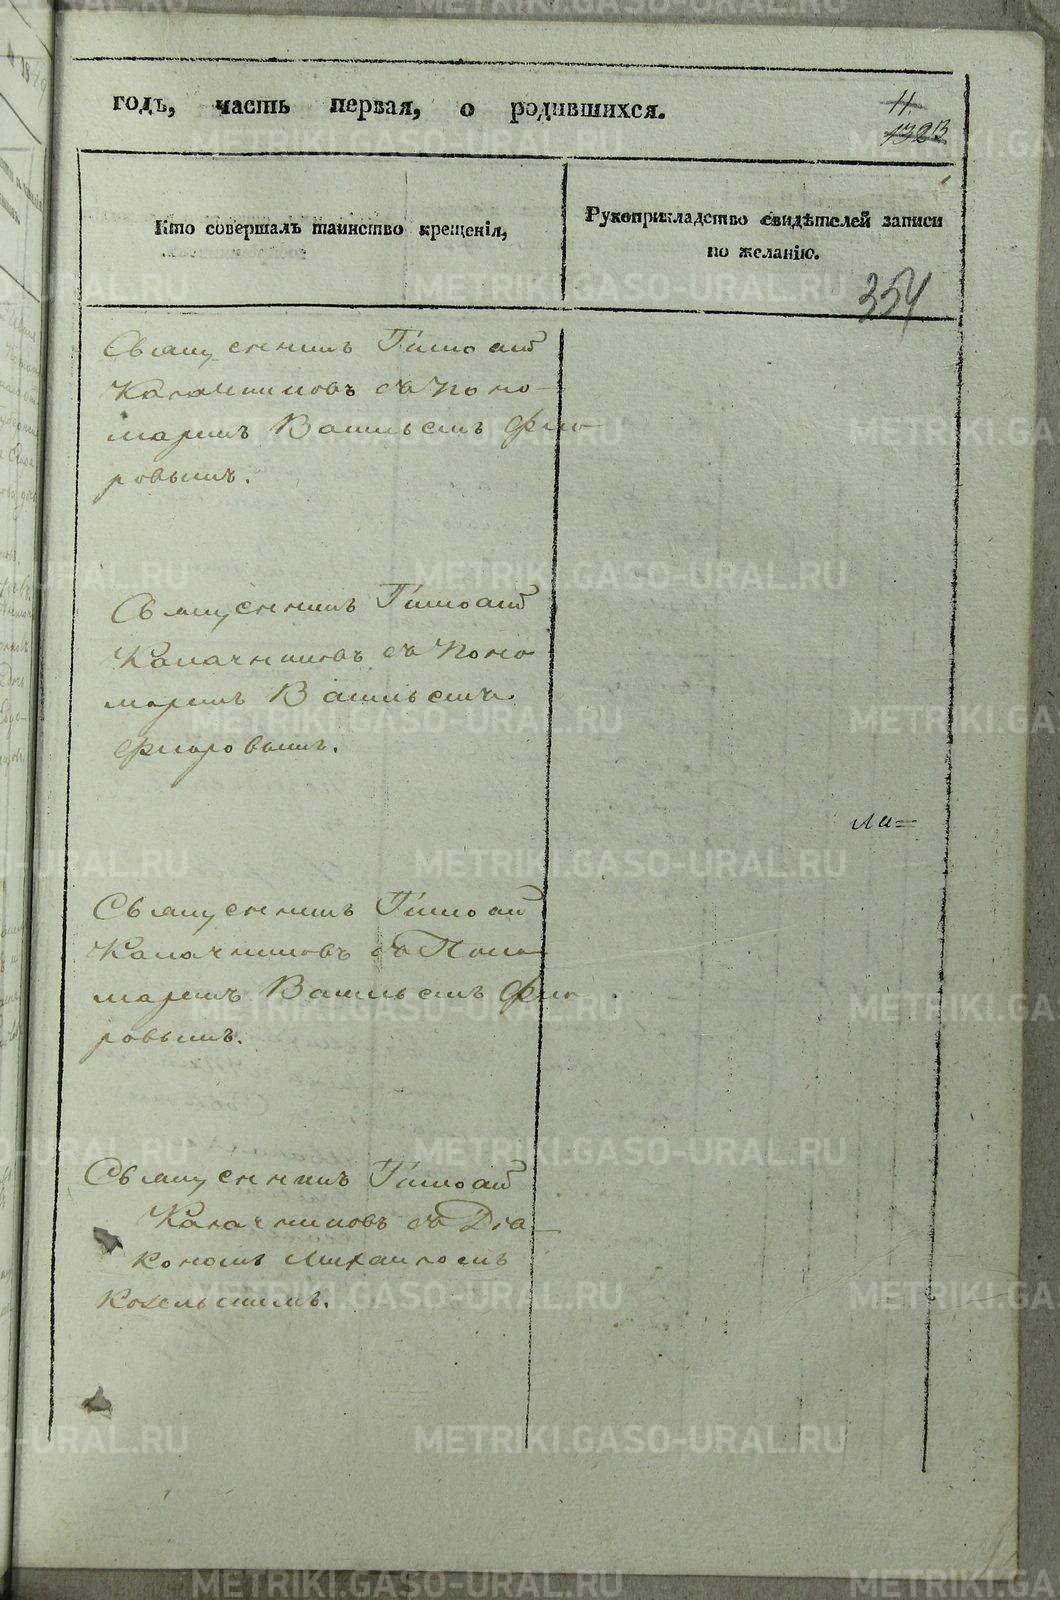 годъ, часть первая, о родившихся.
11.
1323
Кто совершалъ таинство крещенія,
Рукоприкладство свидѣтелей записи
по желанію.
354
Священникъ Тимоѳей
Калачниковъ съ Поно-
маремъ Васильемъ Фло-
ровымъ.
Священникъ Тимоѳей
Калачниковъ съ Поно
маремъ Васильемъ
Флоровымъ.
ла=
Священникъ Тимоѳей
Калачниковъ съ Поно-
маремъ Васильемъ Фло-
ровымъ.
Священникъ Тимоѳей
Калачниковъ съ Діа-
кономъ Михаиломъ
Козельскимъ.
METRIKI.GASO-URAL.RU